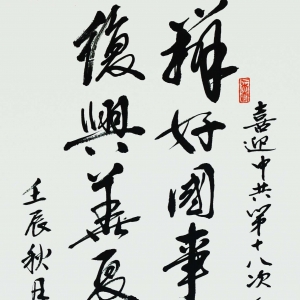 喜迎中共第十八次
辦好國事
復興華夏
壬辰秋月